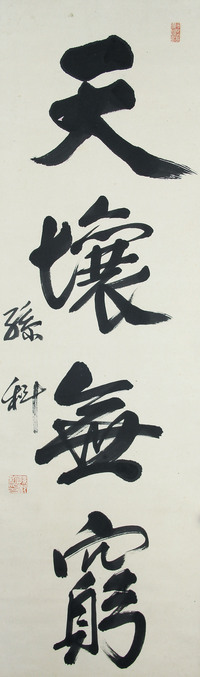 天壤無窮
孫科